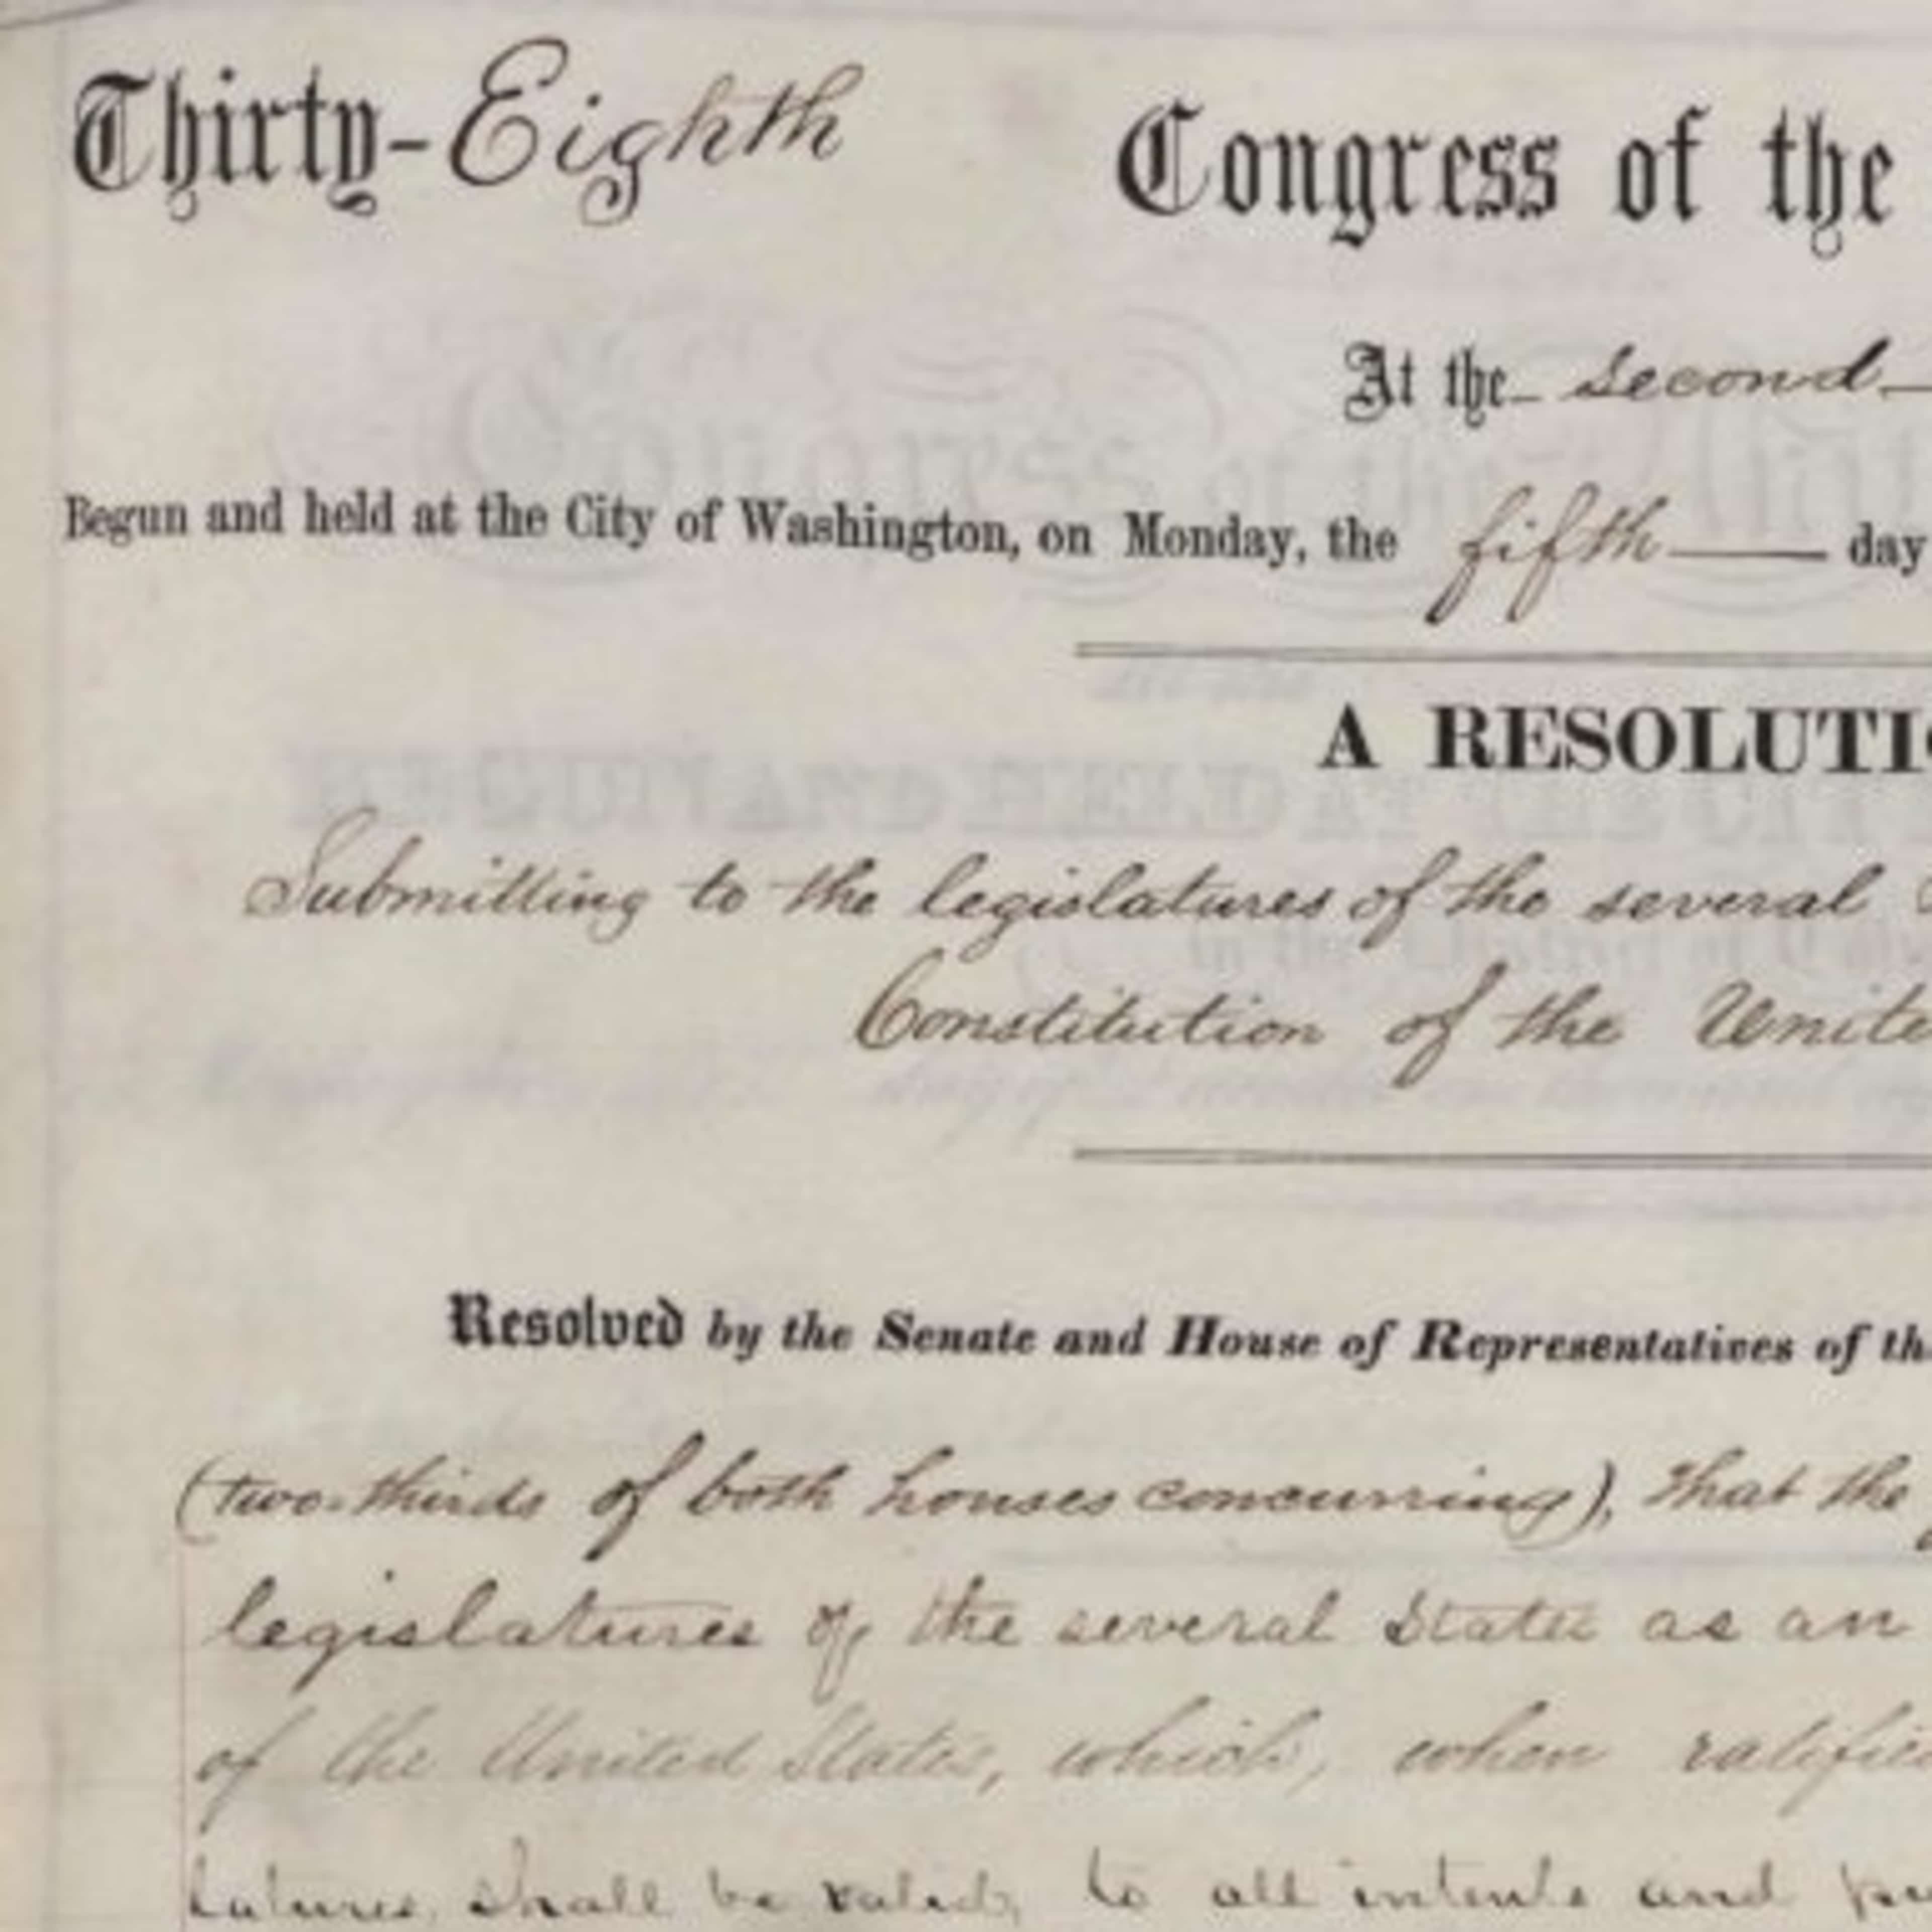 Thirty-Eighth Congress of the
At the second
Begun and held at the City of Washington, on Monday, the fifth day
A RESOLUTI
Submitting to the legislatures of the several
Constitution of the Unite
Resolved by the Senate and House of Representatives of th
(two-thirds of both houses concurring), that the
legislatures of the several States as an
of the United States, which, when ratifie
latures shall be valid, to all intents and pu